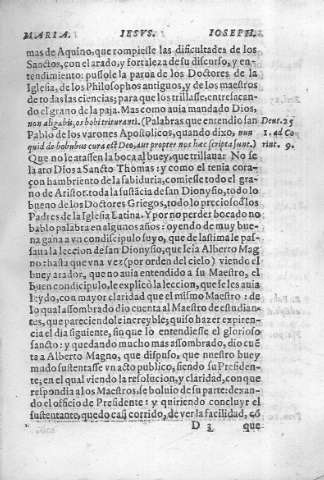 MARIA. IESVS. IOSEPH.
mas de Aquino, que rompiesse las dificultades de los
Sanctos, con el arado, y fortaleza de su discurso, y en-
tendimiento: pusole la parua de los Doctores de la
Iglesia, de los Philosophos antiguos, y de los maestros
de todas las ciencias; para que los trillasse, entresacan-
do el grano de la paja. Mas como auia mandado Dios,
non aligabis, os boui trituranti. (Palabras que entendio san Deut. 25
Pablo de los varones Apostolicos, quando dixo, nun 1. ad Co
quid de bobus cura est Deo, aut propter nos hæc scripta sunt.) rint. 9.
Que no le atassen la boca al buey, que trillaua: No se
la ato Dios a Sancto Thomas: y como el tenia cora-
çon hambriento de la sabiduria, comiese todo el gra-
no de Aristot. toda la sustãcia de san Dionysio, todo lo
bueno de los Doctores Griegos, todo lo precioso ð los
Padres de la Iglesia Latina. Y por no perder bocado no
hablo palabra en algunos años: oyendo de muy bue-
na gana a vn condiscipulo suyo, que de lastima le pas-
saua la leccion de san Dionysio, que leia Alberto Mag
no: hasta que vna vez (por orden del cielo) viendo el
buey arador, que no auia entendido a su Maestro, el
buen condicipulo, le explicò la leccion, que se les auia
leydo, con mayor claridad que el mismo Maestro: de
lo qual assombrado dio cuenta al Maestro de estudian-
tes, que pareciendole increyble; quiso hazer expirien-
cia el dia siguiente, sin que lo entendiesse el glorioso
sancto: y quedando mucho mas assombrado, dio cuẽ
ta a Alberto Magno, que dispuso, que nuestro buey
mudo sustentasse vn acto publico, siendo su Presiden-
te; en el qual viendo la resolucion, y claridad, con que
respondia a los Maestros, se boluio de su parte: dexan-
do el officio de Presidente: y quiriendo concluyr el
sustentante, quedo casi corrido, de ver la facilidad, cõ
D 3 que